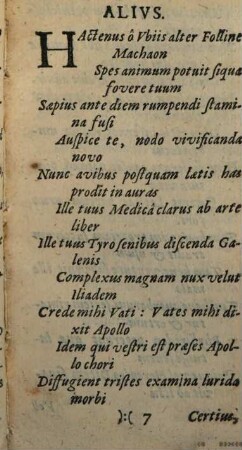 ALIVS.
HActenus ô Vbiis alter Folline
Machaon
Spes animum potuit siqua
fovere tuum
Sæpius ante diem rumpendi stami
na fusi
Auspice te, nodo vivificanda
novo
Nunc avibus postquam lætis has
prodit in auras
Ille tuus Medicâ clarus ab arte
liber
Ille tuus Tyrosenibus discenda Ga-
lenis
Complexus magnam nux velut
Iliadem
Crede mihi Vati: Vates mihi di-
xit Apollo
Idem qui vestri est præses Apol-
lo chori
Diffugient tristes examina lurida
morbi
):( 7 Certius,